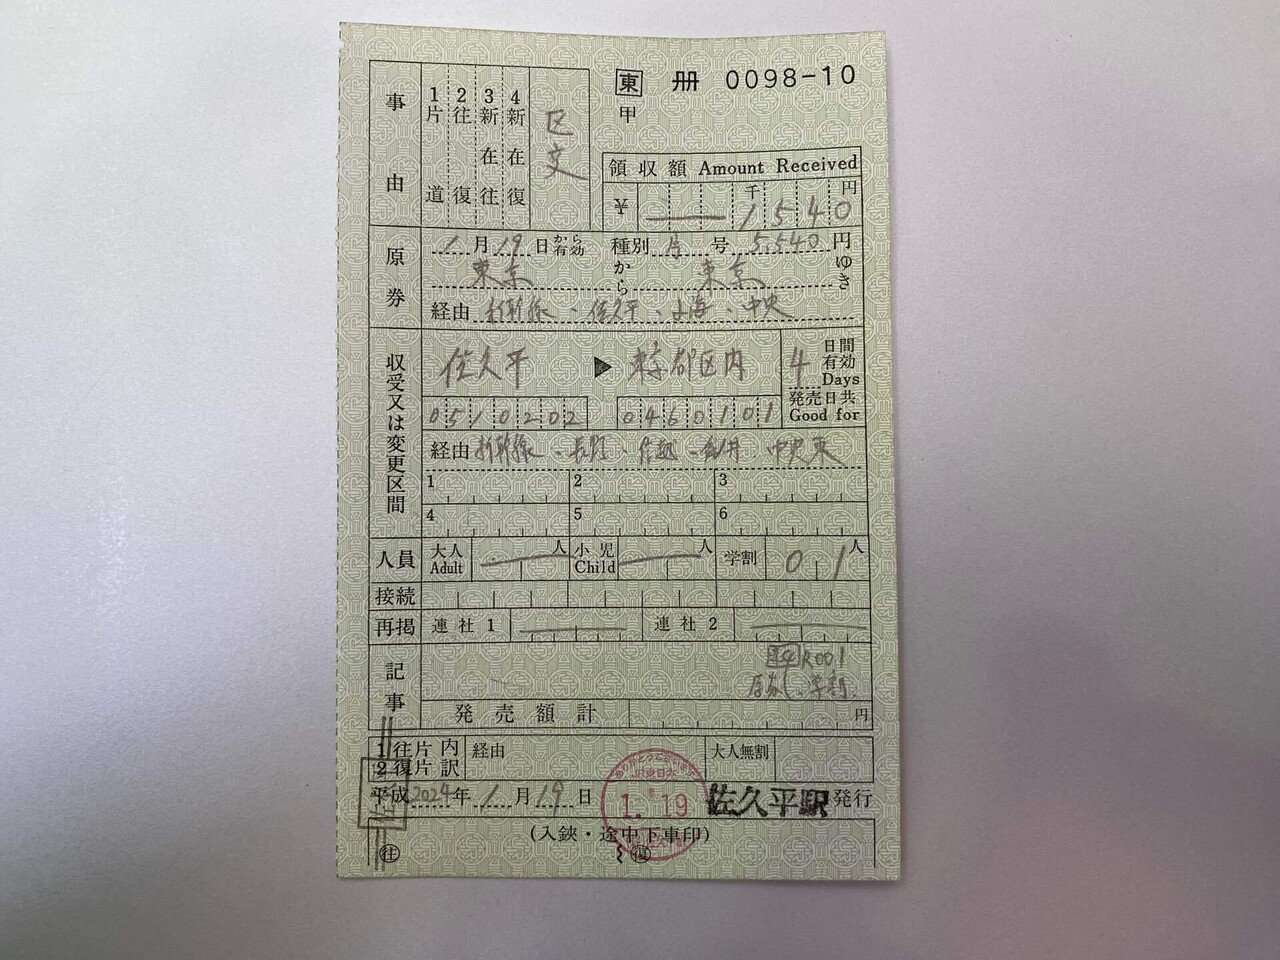 東 冊 0098-10
甲
事由
1片道
2往復
3新在往
4新在復
区変
領収額 Amount Received
千 円
¥ 1540
原券
1月19日から有効 種別 片 号 5,540円
東京から東京ゆき
経由 新幹線・佐久平・小海・中央
収受又は変更区間
佐久平 ▶ 東京都区内
4日間有効 Days
発売日共 Good for
0510202 0460101
経由 新幹線・長野・篠・中央東
1 2 3
4 5 6
人員 大人 Adult 人 小児 Child 人 学割 01人
接続
再掲 連社1 連社2
記事
R001
学割
発売額計 円
1往片内
2復片訳
経由
大人無割
平成2024年1月19日
JR東日本
1.19
佐久平駅発行
(入鋏・途中下車印)
往 復